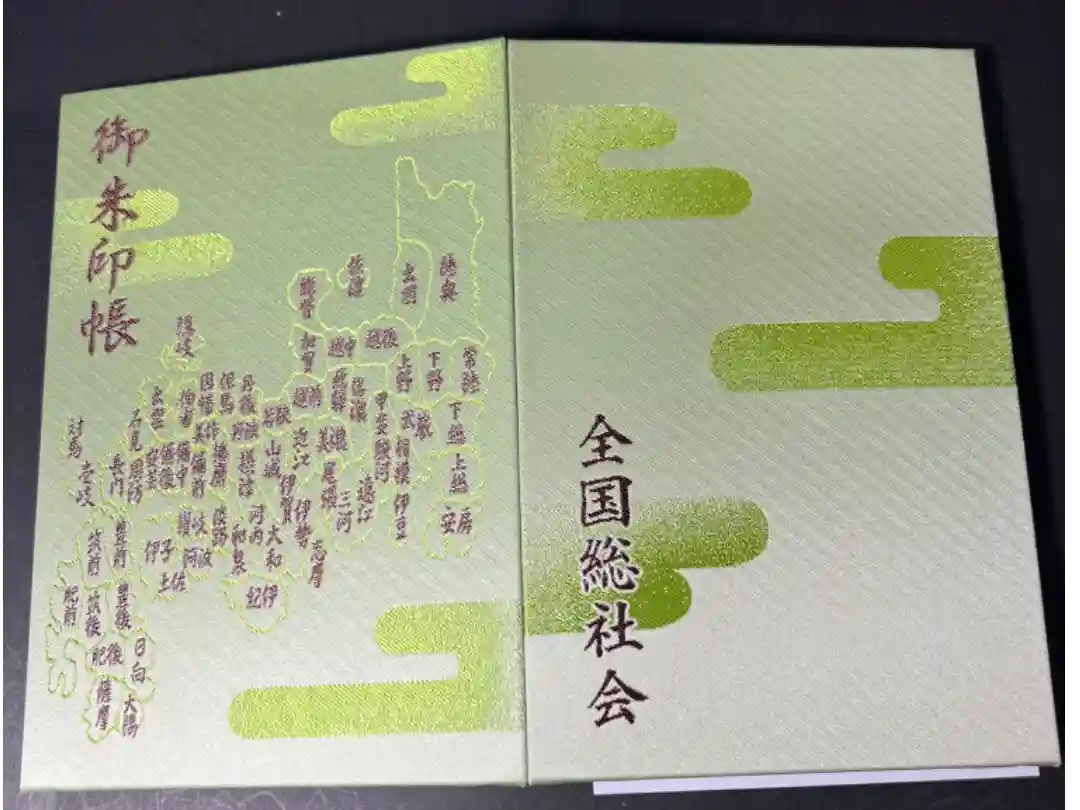 御朱印帳
全国総社会
陸奥
出羽
佐渡
能登
越後
越中
加賀
越前
常陸
下野
上野
下総
上総
安房
武蔵
相模
伊豆
甲斐
駿河
遠江
三河
信濃
飛騨
美濃
尾張
志摩
伊勢
伊賀
近江
若狭
山城
大和
河内
和泉
紀伊
摂津
丹後
丹波
但馬
播磨
淡路
因幡
美作
備前
伯耆
備中
備後
隠岐
出雲
安芸
石見
周防
長門
讃岐
阿波
伊予
土佐
対馬
壱岐
豊前
筑前
豊後
筑後
肥前
肥後
日向
薩摩
大隅